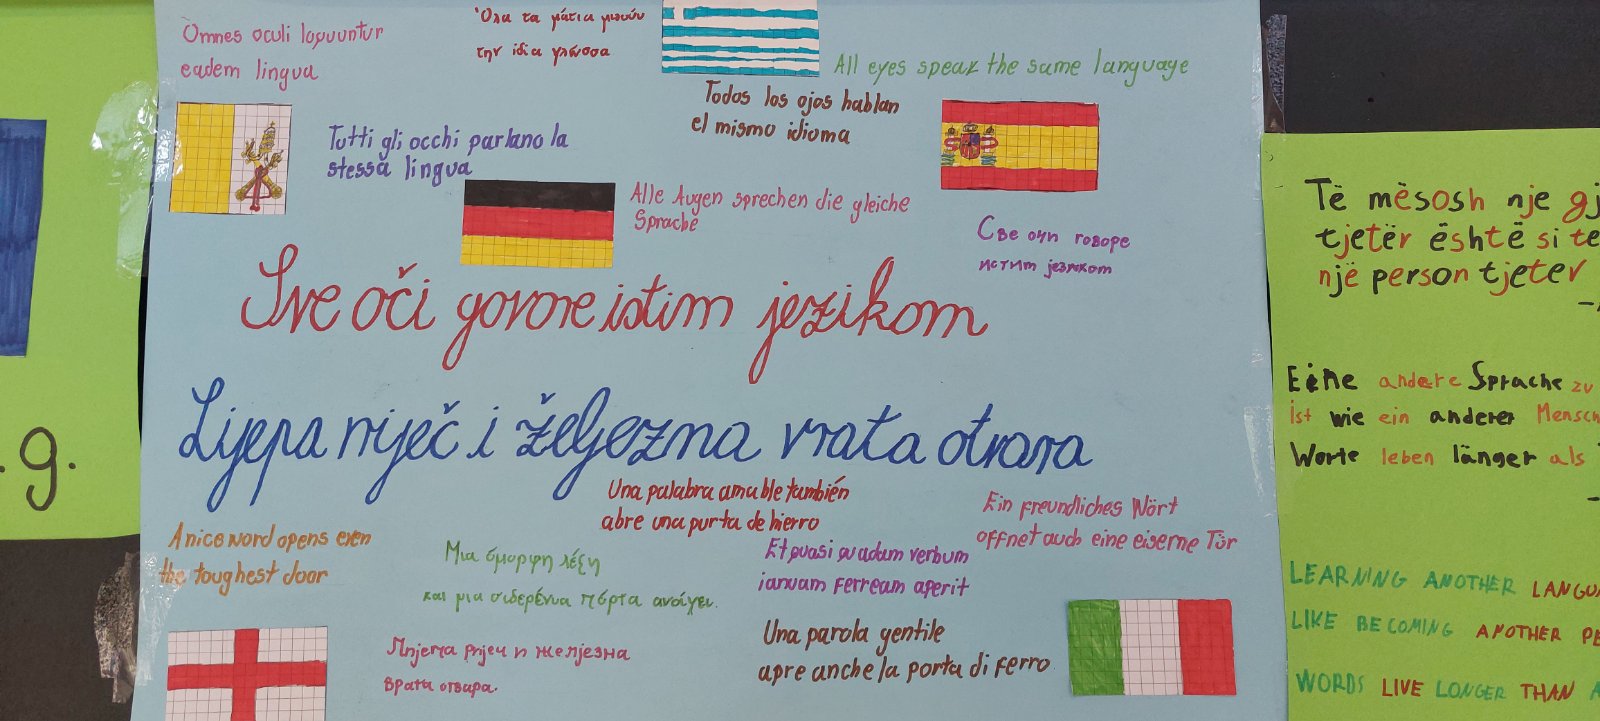 .g.
Omnes oculi loquuntur
eadem lingua
Όλα τα μάτια μιλούν
την ίδια γλώσσα
All eyes speak the same language
Todos los ojos hablan
el mismo idioma
Tutti gli occhi parlano la
stessa lingua
Alle Augen sprechen die gleiche
Sprache
Све очи говоре
истим језиком
Sve oči govore istim jezikom
Lijepa riječ i željezna vrata otvara
Una palabra amable también
abre una purta de hierro
Ein freundliches Wört
offnet auch eine eiserne Tür
A nice word opens even
the toughest door
Μια όμορφη λέξη
και μια σιδερένια πόρτα ανοίγει.
Et quasi quadam verbum
ianuam ferream aperit
Лијепа ријеч и жељезна
врата отвара.
Una parola gentile
apre anche la porta di ferro
Të mësosh nje gj
tjetër është si te
një person tjeter
Eine andere Sprache zu
ist wie ein anderer Mensch
Worte leben länger als
LEARNING ANOTHER LANGUA
LIKE BECOMING ANOTHER PE
WORDS LIVE LONGER THAN